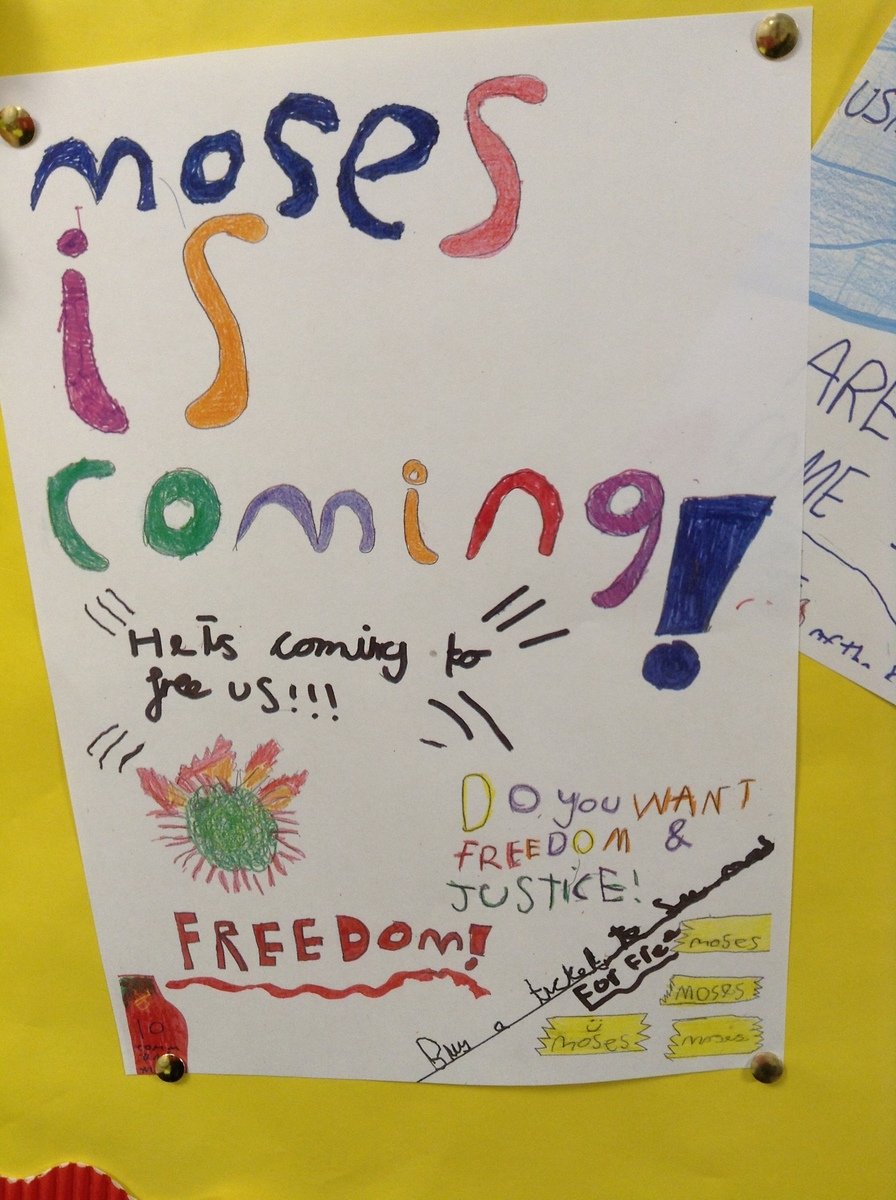 moses
is
coming!
He Is coming to
free us!!!
DO you WANT
FREEDOM &
JUSTICE!
FREEDOM!
Buy a ticket to see
For Free
moses
MOSES
moses
moses
10
comm
USI
ARE
ME
of the